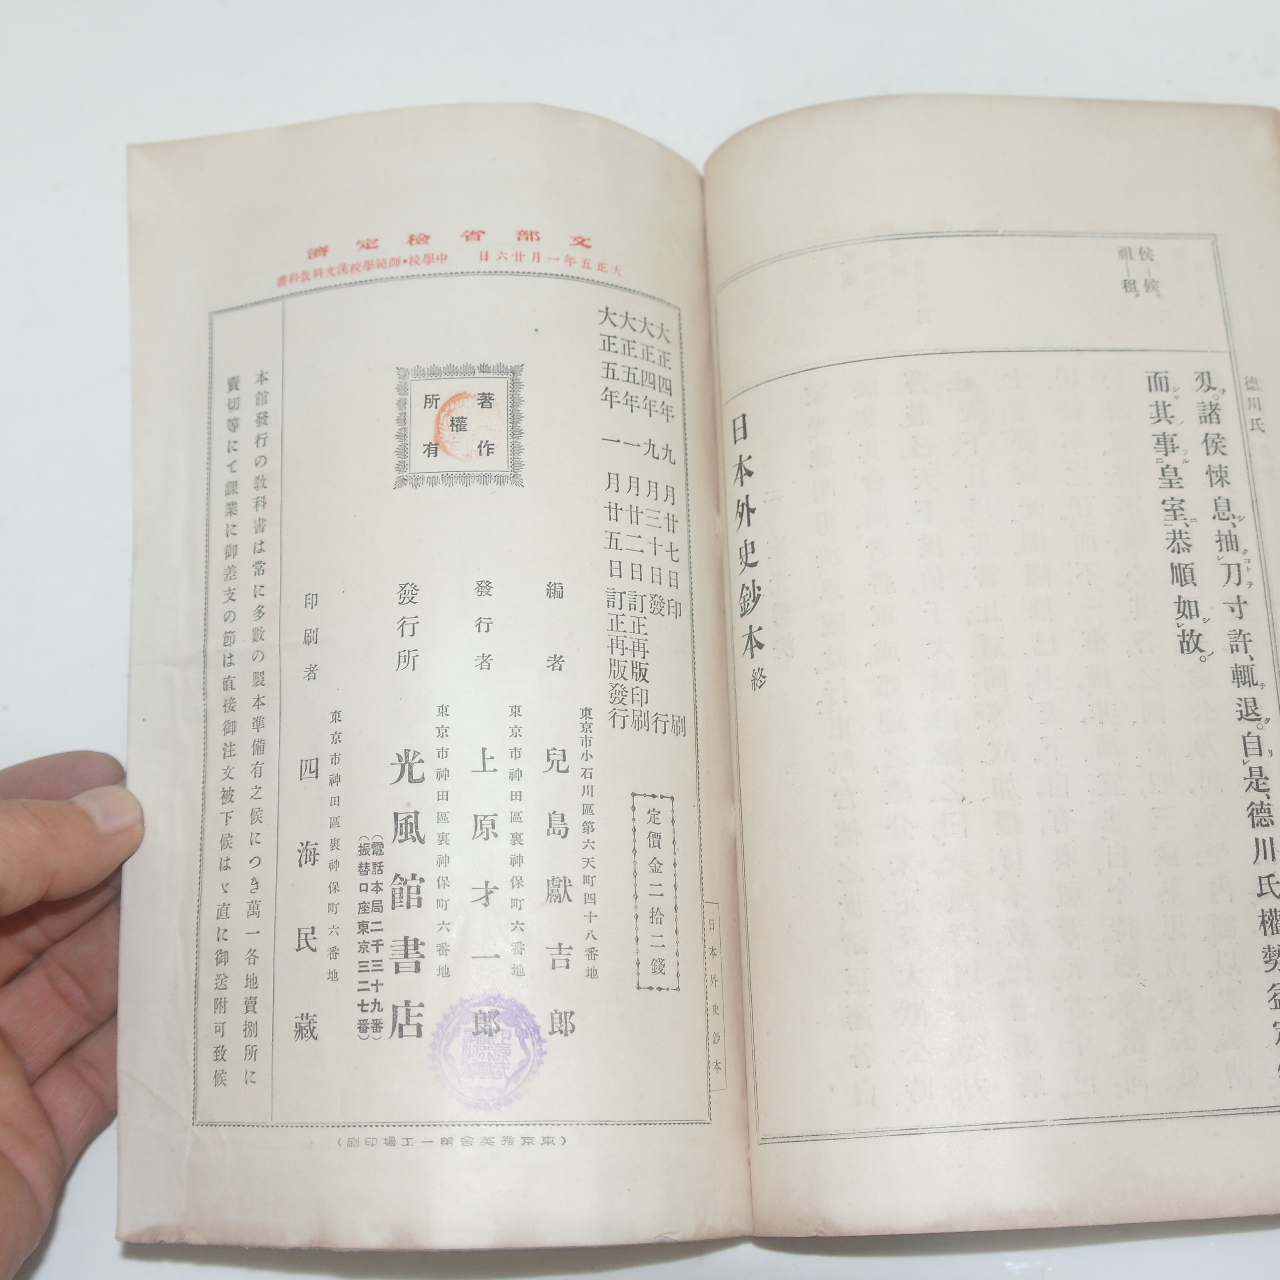 德川氏
侯―候。
祖―租。
刄。諸侯悚息、抽刀寸許、輒退。自是、德川氏權勢益定、
而其事皇室、恭順如故。
日本外史鈔本 終
文部省檢定濟
大正五年一月廿六日 中學校・師範學校漢文科敎科書
大正四年九月廿七日印刷
大正四年九月三十日發行
大正五年一月廿二日訂正再版印刷
大正五年一月廿五日訂正再版發行
定價金二拾二錢
日本外史鈔本
著作權所有
東京市小石川區第六天町四十八番地
編者 兒島獻吉郎
東京市神田區裏神保町六番地
發行者 上原才一郎
東京市神田區裏神保町六番地
發行所 光風館書店
(電話本局二千三十九番)
(振替口座東京三二七番)
東京市神田區裏神保町六番地
印刷者 四海民藏
本館發行の敎科書は常に多數の製本準備有之候につき萬一各地賣捌所に
賣切等にて課業に御差支の節は直接御注文被下候はゞ直に御送附可致候
(東京秀英舍第一工場印刷)